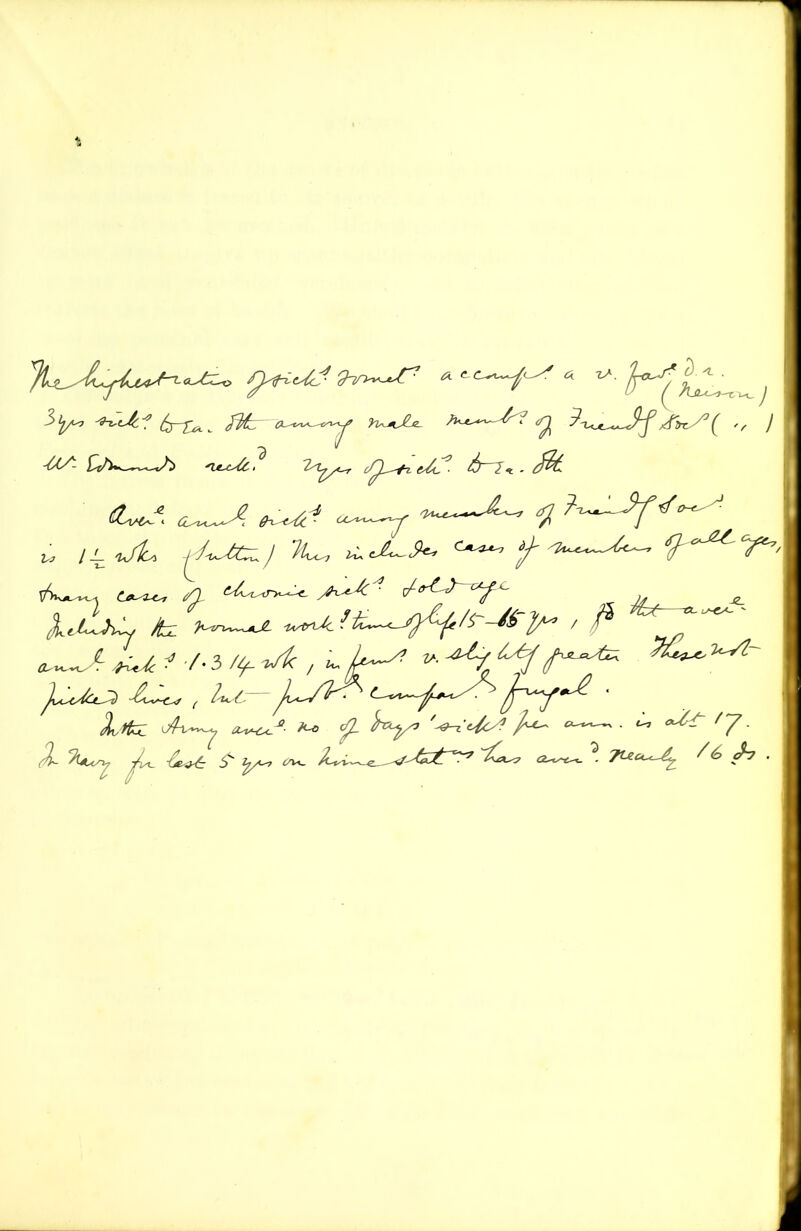 The highest ratio of sick^s to mort^y accomp^s a v. fav^ble d.r.
(Neison)
3 yrs sick^s to 1 a. dth among male memb^s of Friendly Soc^s ( ,, )
W. Edmonds reck^d 2 yrs of sick^s to 1 a. dth
Aver^e annual sick^s among members of Friendly Soc^s
is 1½ wks (Sutton) This includes cases of members of all ages,
& many cases of chronic sick^s & old age
Including the normal work^g time of life 15–65 yrs, the aver^e
annual sick^s 1.314 wk, in fem^s v. slightly greater. These not
picked lives, but
In the Army aver^e no of days' sick^s per ann. is abt 17.
In Navy for last 5 yrs on home stat^n has aver^d nearly 16 ds.